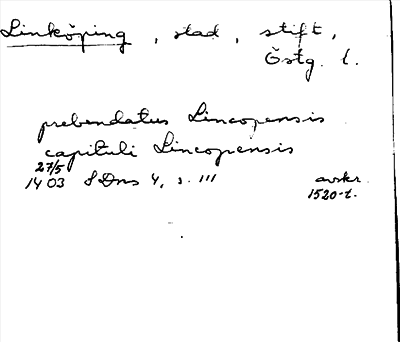 Linköping, stad, stift,
Östg. l.
prebendatus Lincopensis
capituli Lincopensis
27/5
1403 SDns 4, s. 111 avskr.
1520-t.